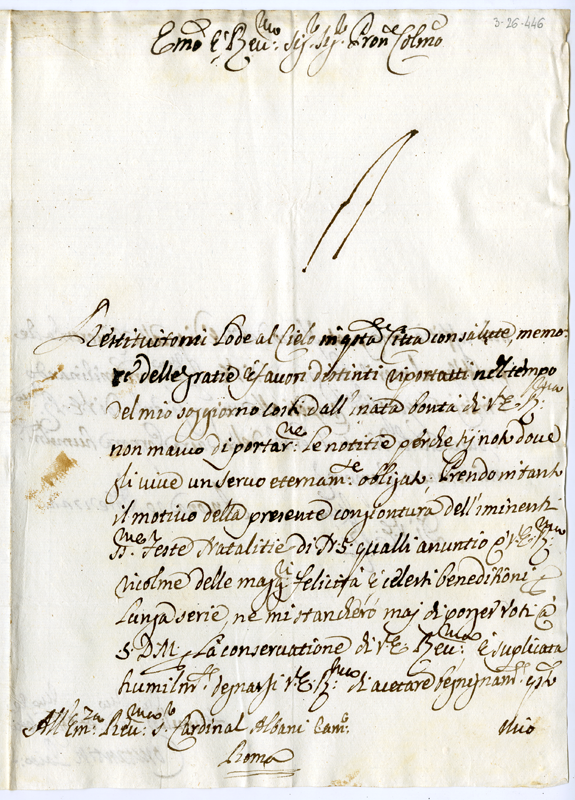 3-26-446
Emo e Revmo: Sigr Sigr: Prone Colmo
Restituitomi Lode al Cielo in qsta Città con salute, memo=
re delle gratie e favori distinti riportatti nel tempo
del mio soggiorno costì dall' inata bontà di V.E. Rma
non manco di portarne Le notitie perche li noto dove
gli vive un servo eternamte obligato, Prendo intanto
il motivo della presente congiontura dell' iminenti
SSme Feste Natalitie di N.S. qualli anuntio a V.E. Rma
ricolme delle magri felicità e celesti beneditioni
Lunga serie, ne mi stancherò maj di porger voti a
S.D.M. La conservatione di V.E. Revma: e suplicata
humilmte: degnarsi V.E. Rma: di acetare begnignamte: qsto
All' Emza Revma: Sr Cardinal Albani Camo:
mio
Roma